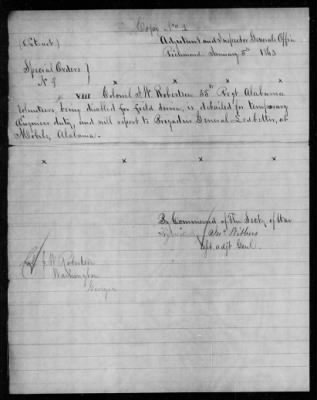 Copy No 2
(Extract)
Adjutant and Inspector Generals Office
Richmond January 5th 1863
Special Orders }
No
x x x x
VIII Colonel F. W. Robertson 35th Regt Alabama
Volunteers, being disabled for field service, is detailed for temporary
Engineer duty, and will report to Brigadier General Ledbetter, at
Mobile, Alabama.
x x x x
By Command of the Secty of War
Withers
Asst. adjt Genl
W Robertson
Washington
Georgia